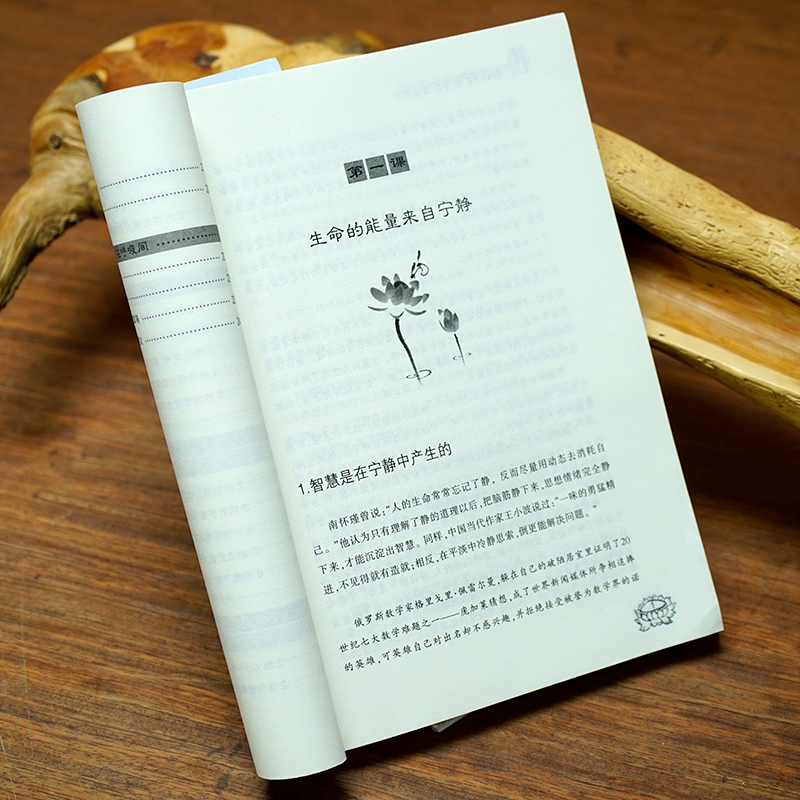 第一课
生命的能量来自宁静
1.智慧是在宁静中产生的
南怀瑾曾说：“人的生命常常忘记了静，反而尽量用动态去消耗自
己。”他认为只有理解了静的道理以后，把脑筋静下来，思想情绪完全静
下来，才能沉淀出智慧。同样，中国当代作家王小波说过：“一味的勇猛精
进，不见得就有造就；相反，在平淡中冷静思索，倒更能解决问题。”
俄罗斯数学家格里戈里·佩雷尔曼，躲在自己的破陋居室里证明了20
世纪七大数学难题之一——庞加莱猜想，成了世界新闻媒体所争相追捧
的英雄，可英雄自己对出名却不感兴趣，并拒绝接受被誉为数学界的诺